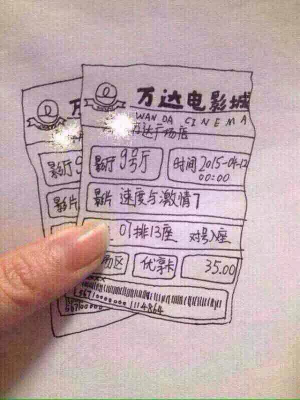 万达电影城
WANDA CINEMA
万达广场店
影厅 9号厅 时间 2015-04-12
00:00
影片 速度与激情7
07排13座 对号入座
区 优享卡 35.00
影厅 9
影片